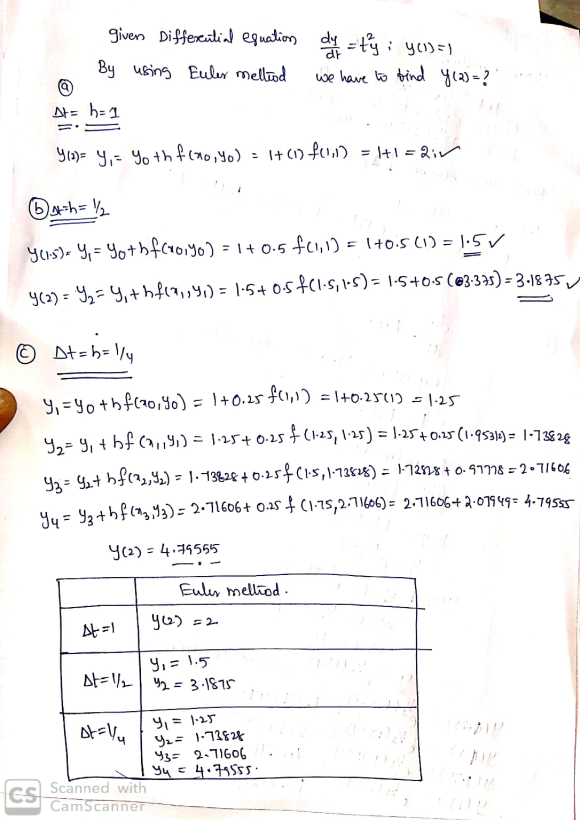 given Differential equation dy/dt = t²y ; y(1)=1
By using Euler method we have to find y(2)=?
(a)
Δt = h=1
y(2)= y₁= y₀+hf(x₀,y₀) = 1+(1) f(1,1) = 1+1 = 2 ✓
(b) Δt=h= 1/2
y(1.5)= y₁= y₀+hf(x₀,y₀) = 1+0.5 f(1,1) = 1+0.5(1) = 1.5 ✓
y(2) = y₂= y₁+hf(x₁,y₁) = 1.5+0.5 f(1.5,1.5)= 1.5+0.5(3.375)=3.1875 ✓
(c) Δt=h=1/4
y₁=y₀+hf(x₀,y₀) = 1+0.25 f(1,1) =1+0.25(1) =1.25
y₂= y₁+hf(x₁,y₁) = 1.25+0.25 f(1.25,1.25)=1.25+0.25(1.95312)=1.73828
y₃= y₂+hf(x₂,y₂) = 1.73828+0.25f(1.5,1.73828)= 1.73828+0.97778=2.71606
y₄= y₃+hf(x₃,y₃)= 2.71606+0.25 f(1.75,2.71606)= 2.71606+2.07949=4.79555
y(2)=4.79555
Euler method.
Δt=1 y(2) =2
Δt=1/2 y₁= 1.5
y₂=3.1875
Δt=1/4 y₁= 1.25
y₂= 1.73828
y₃= 2.71606
y₄ = 4.79555.
CS Scanned with
CamScanner